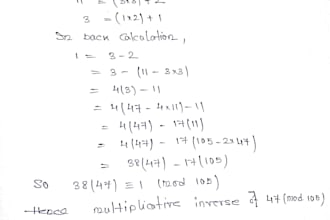 11 = (3×3) + 2
3 = (1×2) + 1
So back calculation,
1 = 3 - 2
= 3 - (11 - 3×3)
= 4(3) - 11
= 4(47 - 4×11) - 11
= 4(47) - 17(11)
= 4(47) - 17(105 - 2×47)
= 38(47) - 17(105)
So 38(47) ≡ 1 (mod 105)
Hence multiplicative inverse of 47 (mod 105)